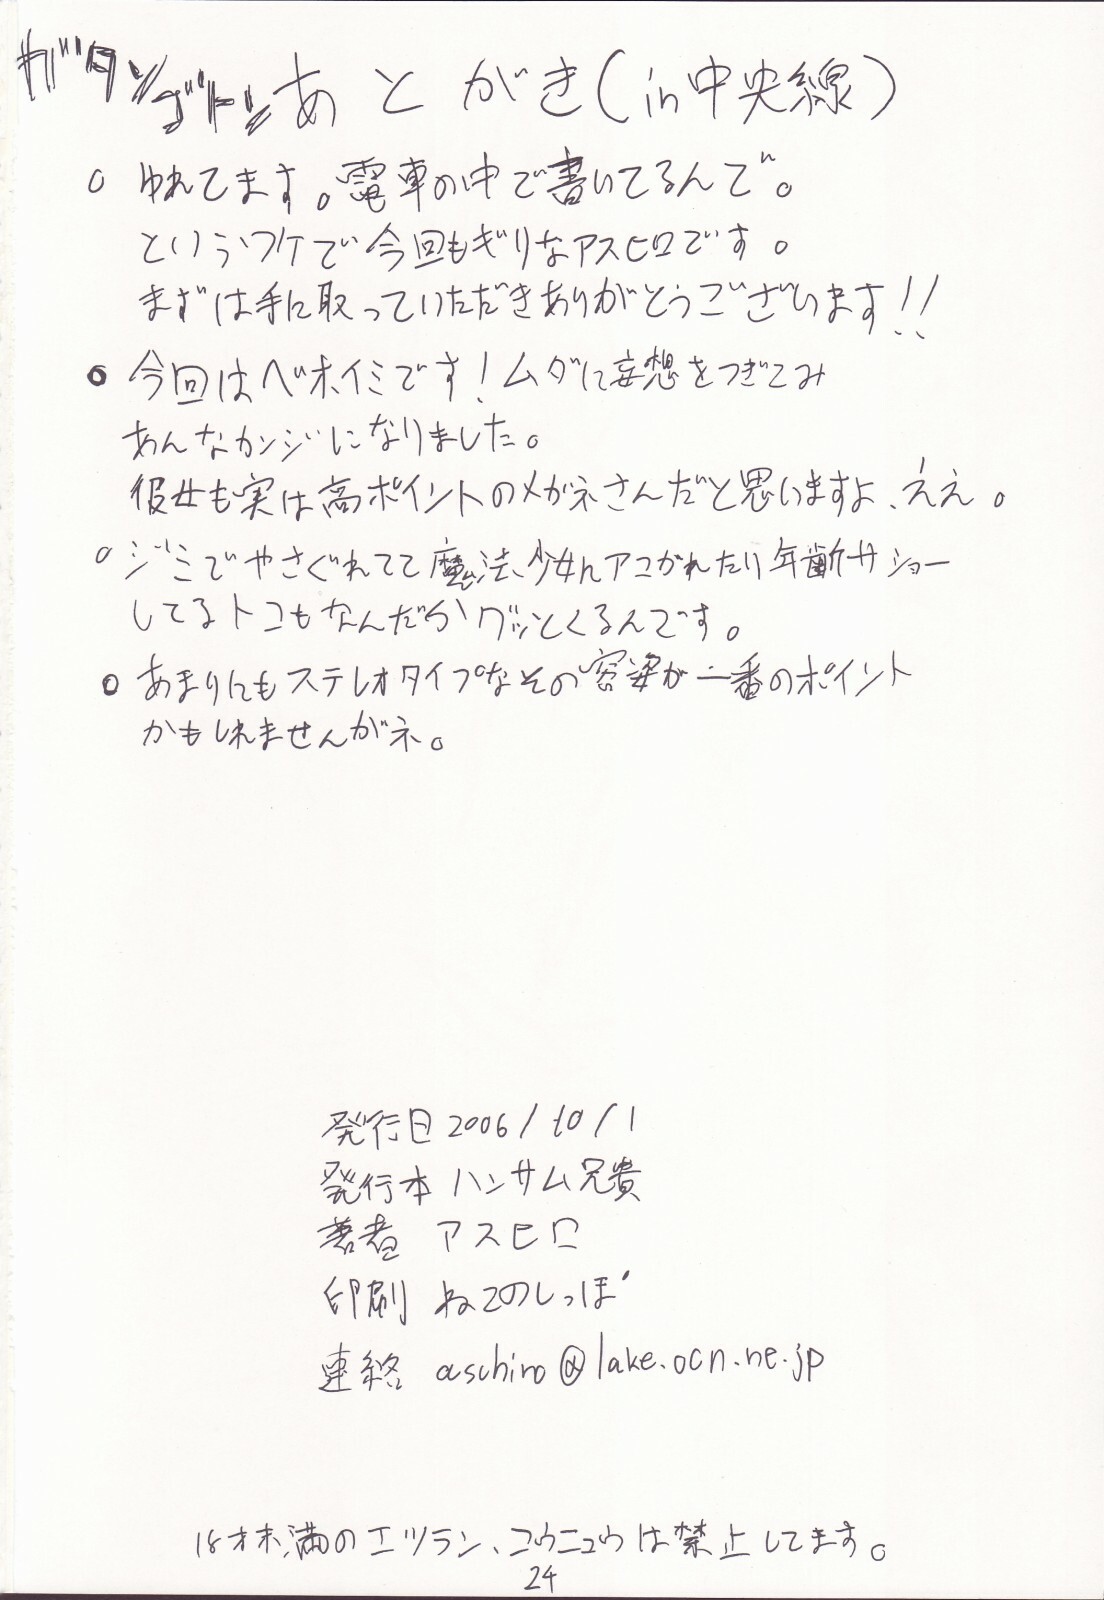 ガタンゴトン あとがき(in中央線)
○ ゆれてます。電車の中で書いてるんで。
というワケで今回もぎりなアスヒロです。
まずは手に取っていただきありがとうございます!!
○ 今回はベホイミです!ムダに妄想をつぎこみ
あんなカンジになりました。
彼女も実は高ポイントのメガネさんだと思いますよ、ええ。
○ ジミでやさぐれてて魔法少女にアコがれたり年齢サショー
してるトコもなんだかグッとくるんです。
○ あまりにもステレオタイプなその容姿が一番のポイント
かもしれませんがネ。
発行日 2006/10/1
発行本 ハンサム兄貴
著者 アスヒロ
印刷 ねこのしっぽ
連絡 aschiro@lake.ocn.ne.jp
18才未満のエツラン、コウニュウは禁止してます。
24